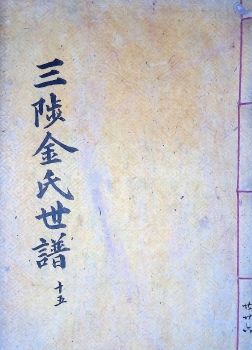 三陟金氏世譜
十五
廿六